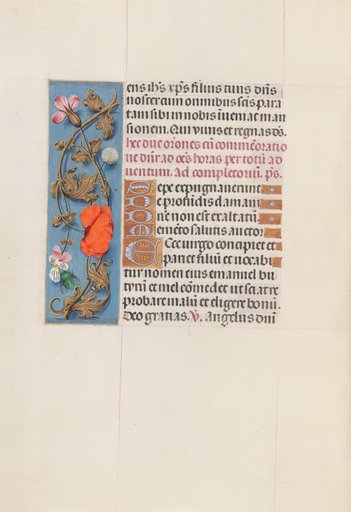 ens ih̄s xp̄s filius tuus dn̄s
noster cum omnibus sc̄is para
tam sibi in nobis inueniat man
sionem. Qui uiuis et regnas ds̄.
hec due or̄ones cū commēoratio
ne dn̄r ad oēs horas per totū ad
uentum. ad completoriū. ps̄.
Sepe expugnauerunt
e profūdis clamaui
n̄e non est exaltatū
emēto salutis auctor
Ecce uirgo concipiet et
pariet filiū et uocabi
tur nomen eius emanuel bu
tyrū et mel comedet ut sciat re
probare malū et eligere bonū.
Deo gratias. V. angelus dn̄i